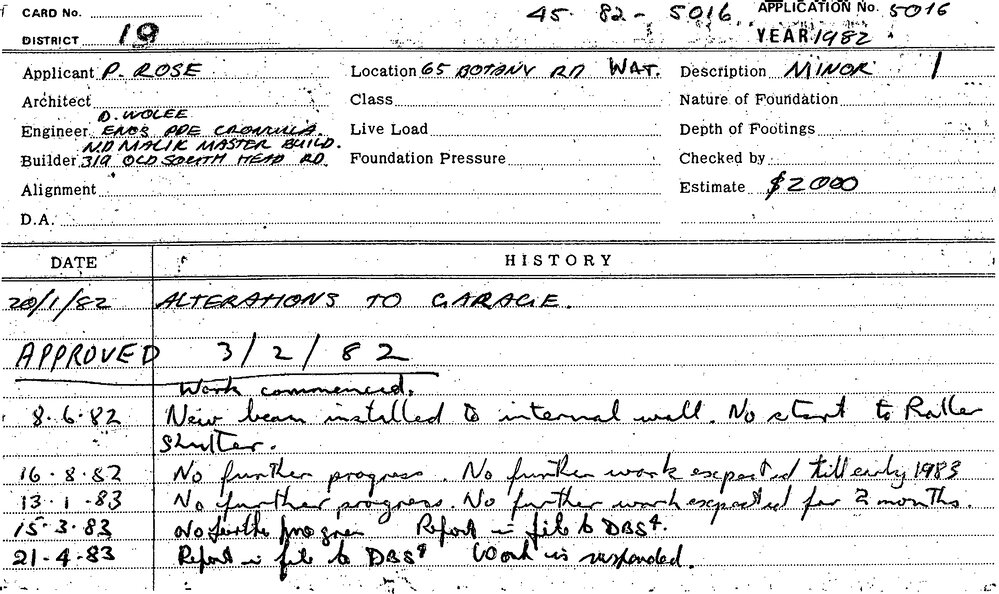 CARD No. 45-82-5016 APPLICATION No. 5016
DISTRICT 19 YEAR 1982
Applicant P. ROSE Location 65 BOTANY RD WAT. Description MINOR 1
Architect Class Nature of Foundation
D. WOLEE
Engineer ENGS PDE CRONULLA Live Load Depth of Footings
N.D MALIK MASTER BUILD.
Builder 319 OLD SOUTH HEAD RD. Foundation Pressure Checked by
Alignment Estimate $2000
D.A.
DATE HISTORY
20/1/82 ALTERATIONS TO GARAGE.
APPROVED 3/2/82
Work commenced.
8.6.82 New beam installed to internal wall. No start to Roller
Shutter.
16.8.82 No further progress. No further work expected till early 1983
13.1.83 No further progress. No further work expected for 2 months.
15.3.83 No further progress Report in file to DBS
21-4-83 Report in file to DBS Work is suspended.